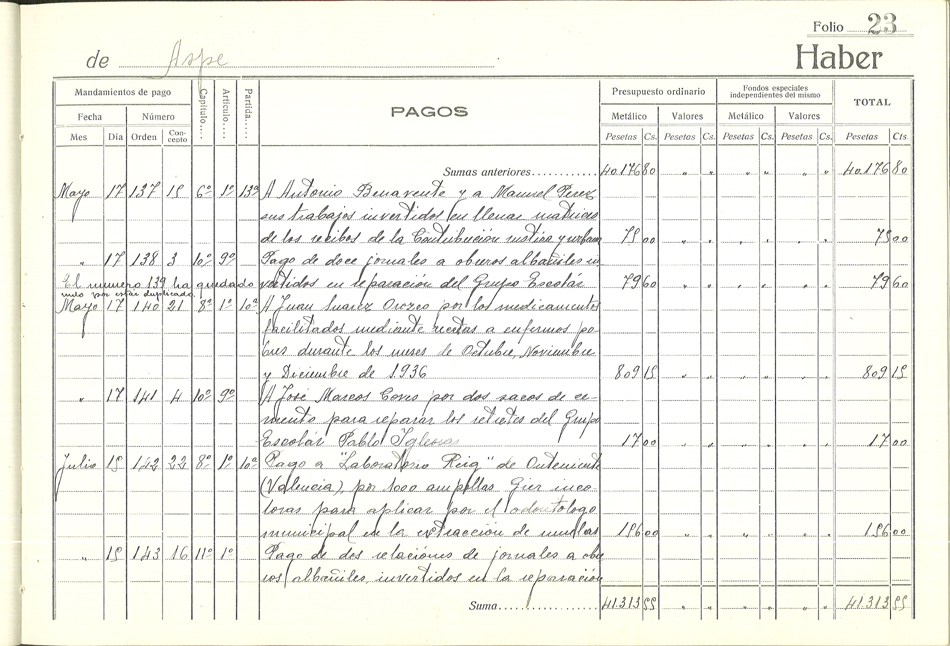 Folio 23
de Aspe
Haber
Mandamientos de pago Capítulo.... Artículo.... Partida... PAGOS Presupuesto ordinario Fondos especiales independientes del mismo TOTAL
Fecha Número Metálico Valores Metálico Valores
Mes Día Orden Concepto Pesetas Cs. Pesetas Cs. Pesetas Cs. Pesetas Cs. Pesetas Cts.
Sumas anteriores............ 40.176 80 " " " " " " 40.176 80
Mayo 17 137 15 6º 1º 13ª A Antonio Benavente y a Manuel Perez
sus trabajos invertidos en llenar matrices
de los recibos de la Contribución rustica y urbana 75 00 " " " " " " 75 00
" 17 138 3 10º 9º Pago de doce jornales a obreros albañiles in
El numero 139 ha quedado vertidos en reparación del Grupo Escolar 79 60 " " " " " " 79 60
nulo por estar duplicado.
Mayo 17 140 21 8º 1º 10ª A Juan Suarez Orozco por los medicamentos
facilitados mediante recetas a enfermos po
bres durante los meses de Octubre, Noviembre
y Diciembre de 1936 809 15 " " " " " " 809 15
" 17 141 4 10º 9º A José Marcos por dos sacos de ce-
mento para reparar los retretes del Grupo
Escolar Pablo Iglesias 17 00 " " " " " " 17 00
Julio 15 142 22 8º 1º 10ª Pago a "Laboratorio Reig" de Onteniente
(Valencia), por 1000 ampollas Gier inco
loras para aplicar por el odontologo
municipal en la extracción de muelas 156 00 " " " " " " 156 00
" 15 143 16 11º 1º Pago de dos relaciones de jornales a obre
ros albañiles, invertidos en la reparación
Suma...................... 41.313 55 " " " " " " 41.313 55